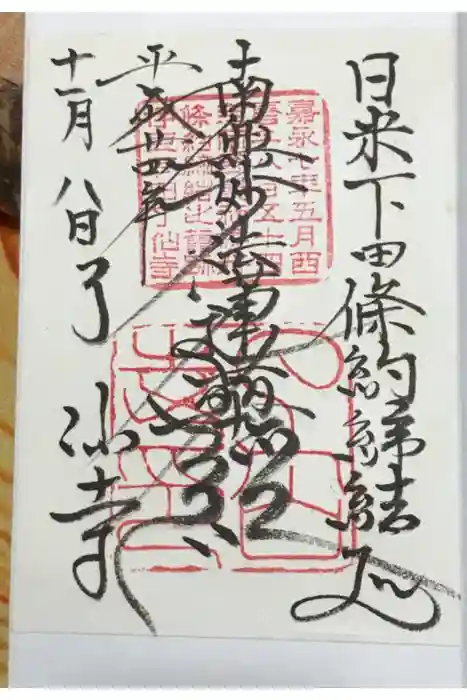 日米下田條約締結処
南無妙法蓮華経
平成廿四年
十一月八日 了仙寺
嘉永七年五月西
條約締結之
了仙寺